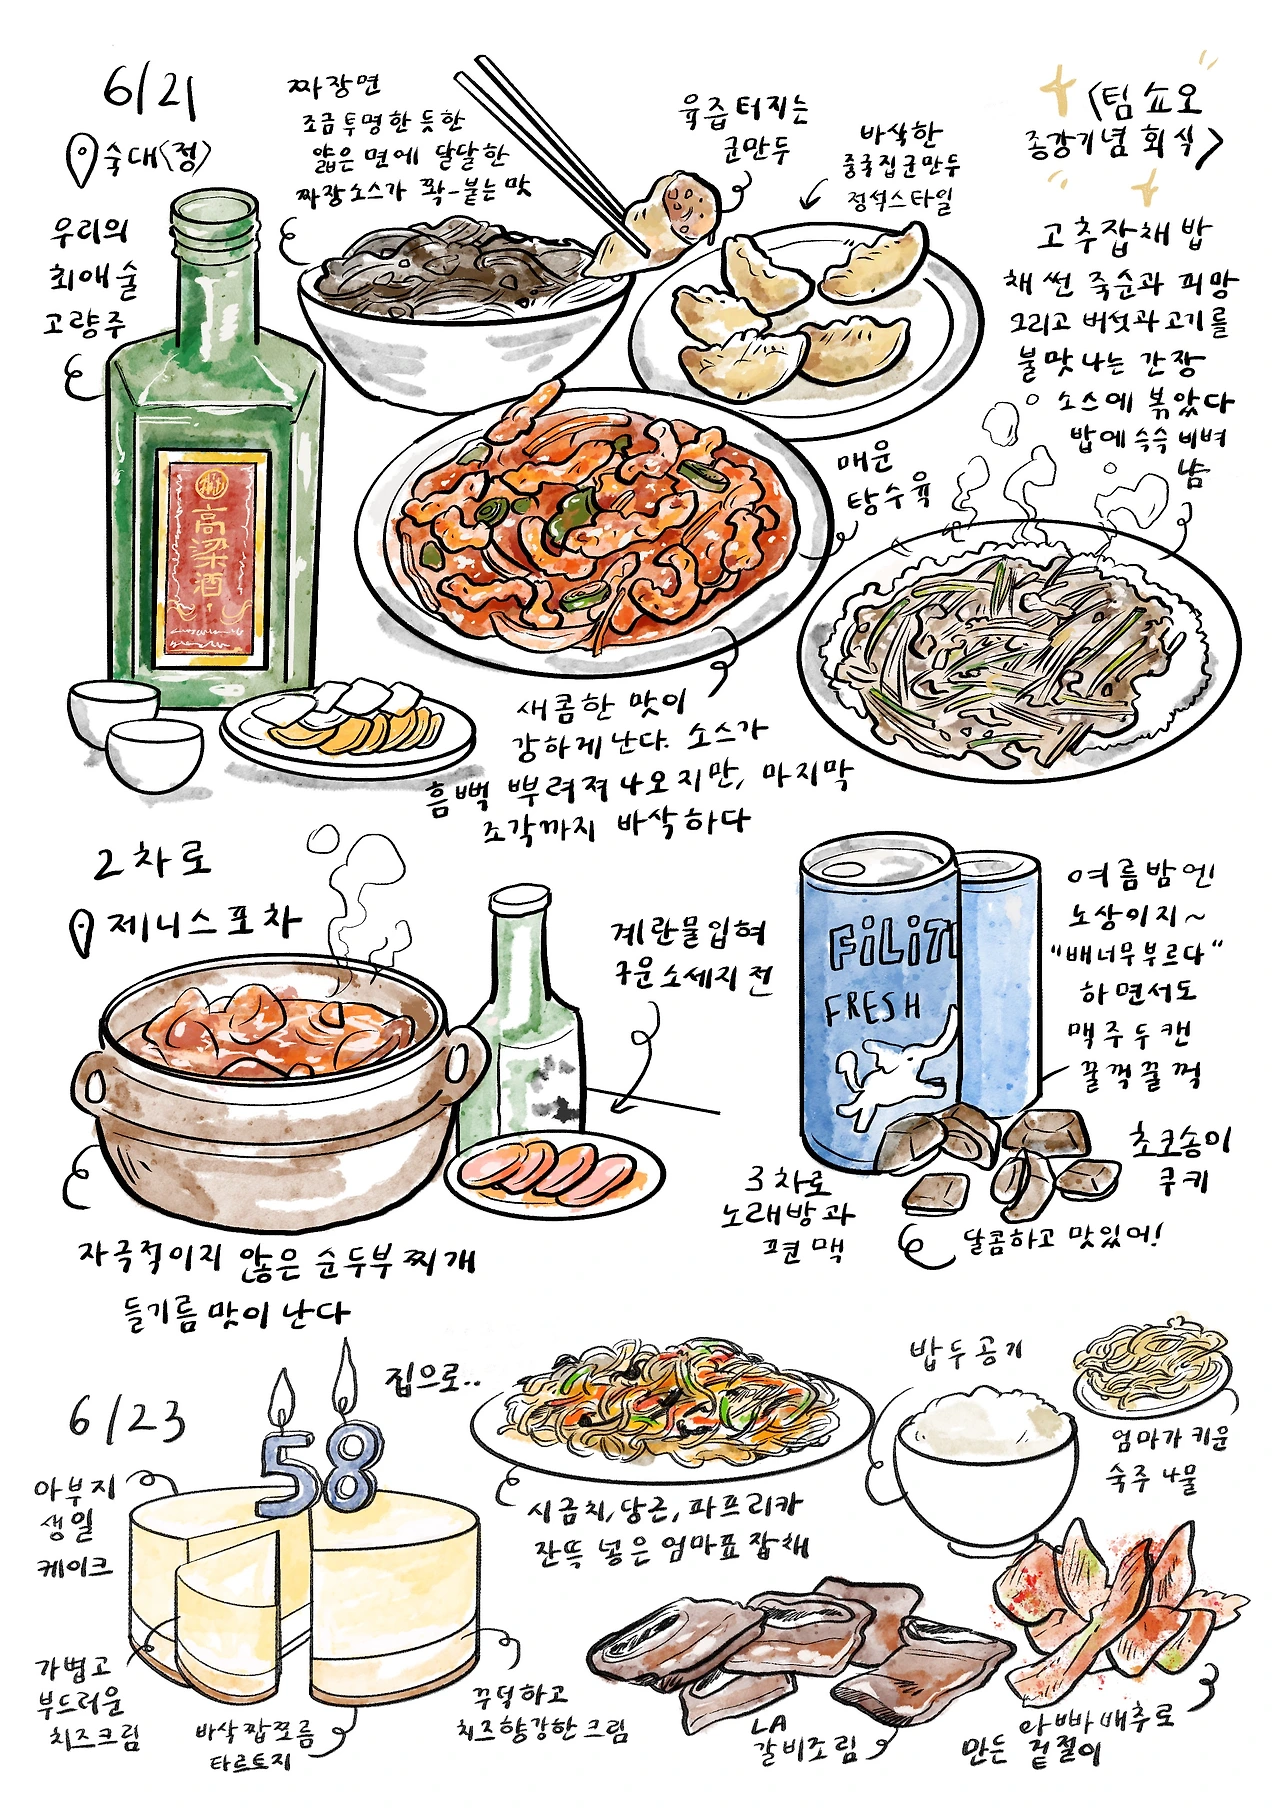 6/21
숙대<정>
우리의
최애술
고량주
짜장면
조금 투명한 듯한
얇은 면에 달달한
짜장소스가 쫙-붙는 맛
육즙 터지는
군만두
바삭한
중국집군만두
정석스타일
<팀 쇼오
종강기념 회식>
고추잡채밥
채 썬 죽순과 피망
그리고 버섯과 고기를
불맛 나는 간장
소스에 볶았다
밥에 슥슥 비벼
냠
매운
탕수육
高粱酒
새콤한 맛이
강하게 난다. 소스가
흠뻑 뿌려져 나오지만, 마지막
조각까지 바삭하다
2차로
제니스포차
계란물입혀
구운 소세지 전
자극적이지 않은 순두부 찌개
들기름 맛이 난다
FiLiT
FRESH
여름밤엔
노상이지~
"배너무부르다"
하면서도
맥주 두 캔
꿀꺽꿀꺽
3차로
노래방과
편맥
초코송이
쿠키
달콤하고 맛있어!
6/23
58
아부지
생일
케이크
가볍고
부드러운
치즈크림
바삭 짭쪼름
타르트지
꾸덕하고
치즈향강한 크림
집으로..
시금치, 당근, 파프리카
잔뜩 넣은 엄마표 잡채
밥 두 공기
엄마가 키운
숙주 나물
LA
갈비조림
아빠 배추로
만든 겉절이